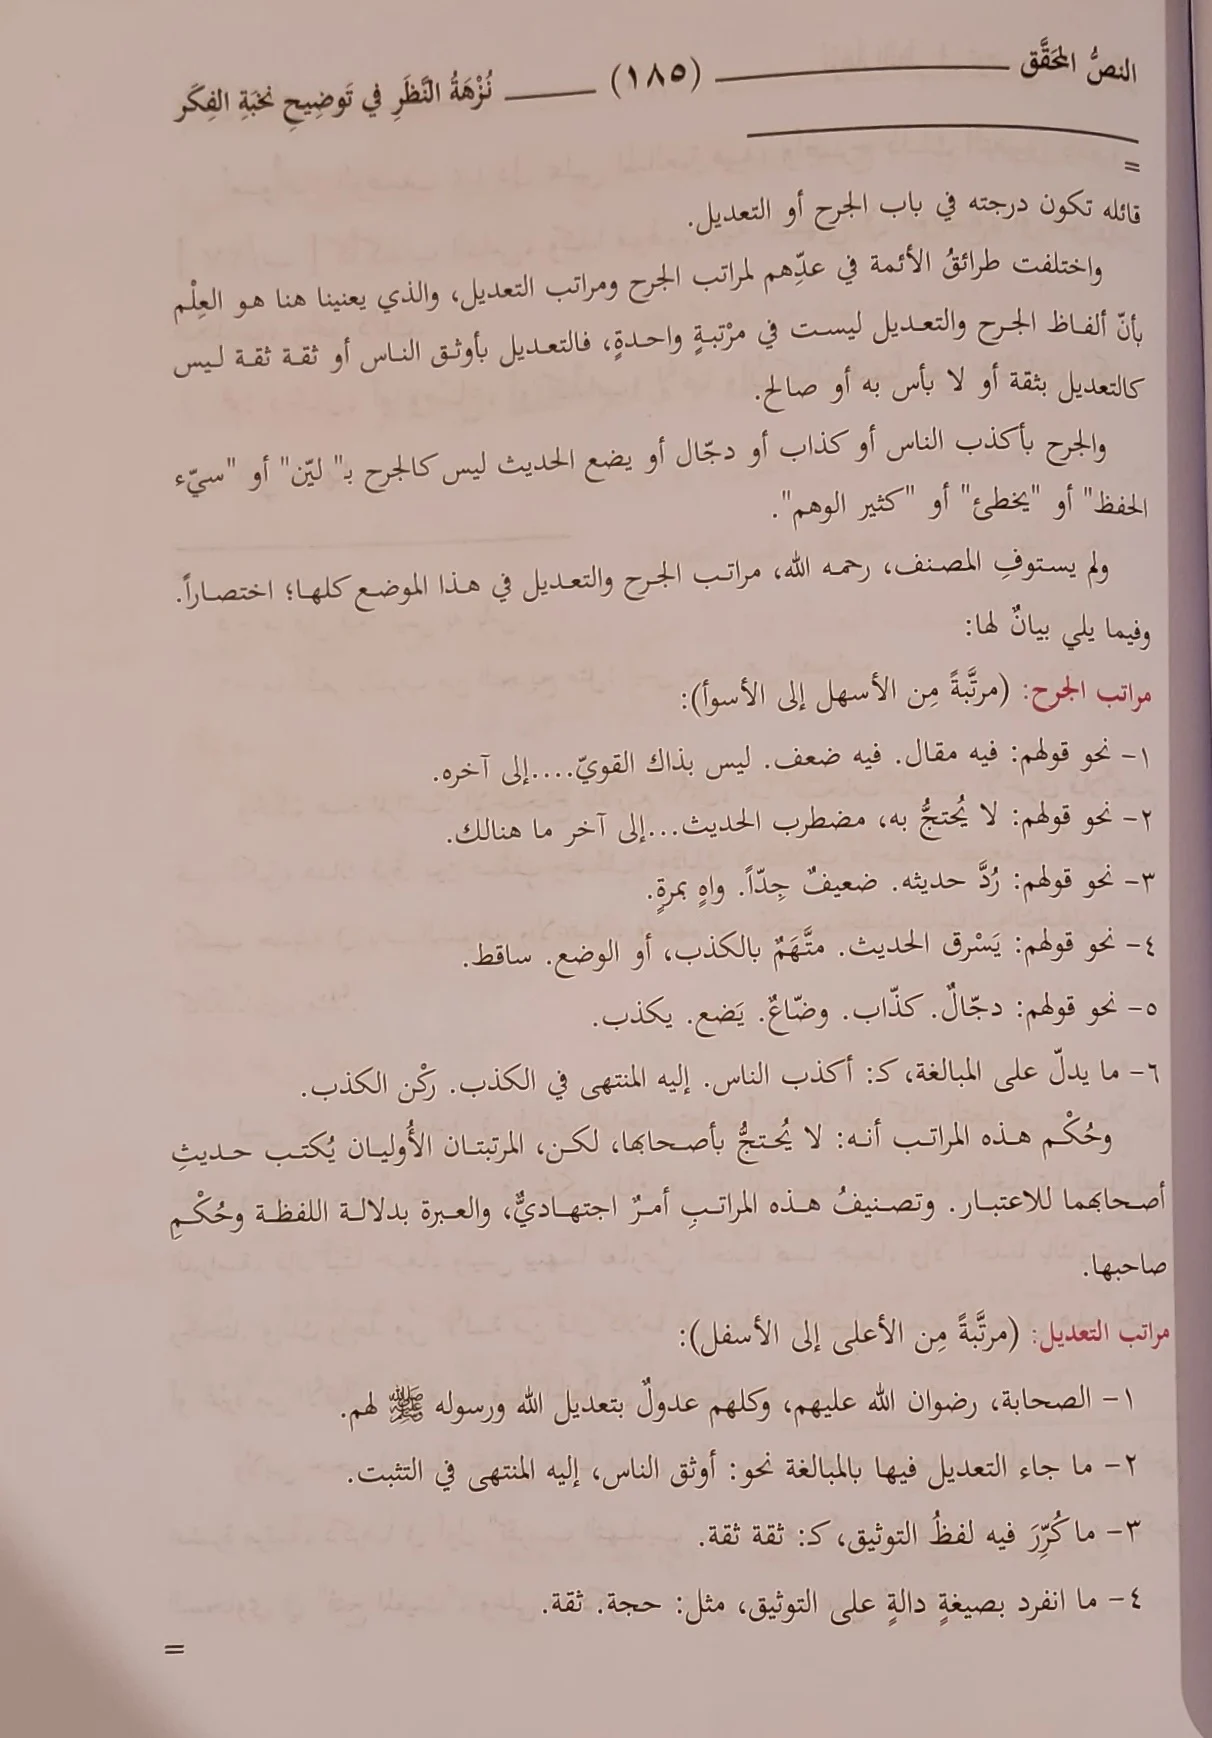 النصُّ المحَقَّق ــــــــــ (١٨٥) ــــــــــ نُزْهَةُ النَّظَرِ في تَوضِيحِ نخبَةِ الفِكَر
=
قائله تكون درجته في باب الجرح أو التعديل.
واختلفت طرائقُ الأئمة في عدِّهم لمراتب الجرح ومراتب التعديل، والذي يعنينا هنا هو العِلْم
بأنّ ألفاظ الجرح والتعديل ليست في مرْتبةٍ واحدةٍ، فالتعديل بأوثق الناس أو ثقة ثقة ليس
كالتعديل بثقة أو لا بأس به أو صالح.
والجرح بأكذب الناس أو كذاب أو دجّال أو يضع الحديث ليس كالجرح بـ" ليّن" أو "سيّء
الحفظ" أو "يخطئ" أو "كثير الوهم".
ولم يستوفِ المصنف، رحمه الله، مراتب الجرح والتعديل في هذا الموضع كلها؛ اختصاراً.
وفيما يلي بيانٌ لها:
مراتب الجرح: (مرتَّبةً مِن الأسهل إلى الأسوأ):
١- نحو قولهم: فيه مقال. فيه ضعف. ليس بذاك القويّ....إلى آخره.
٢- نحو قولهم: لا يُحتجُّ به، مضطرب الحديث...إلى آخر ما هنالك.
٣- نحو قولهم: رُدَّ حديثه. ضعيفٌ جِدّاً. واهٍ بمرةٍ.
٤- نحو قولهم: يَسْرق الحديث. متَّهَمٌ بالكذب، أو الوضع. ساقط.
٥- نحو قولهم: دجّالٌ. كذّاب. وضّاعٌ. يَضع. يكذب.
٦- ما يدلّ على المبالغة، كـ: أكذب الناس. إليه المنتهى في الكذب. ركْن الكذب.
وحُكْم هذه المراتب أنه: لا يُحتجُّ بأصحابها، لكن، المرتبتان الأُوليان يُكتب حديثِ
أصحابهما للاعتبار. وتصنيفُ هذه المراتبِ أمرٌ اجتهاديٌّ، والعبرة بدلالة اللفظة وحُكْمِ
صاحبها.
مراتب التعديل: (مرتَّبةً مِن الأعلى إلى الأسفل):
١- الصحابة، رضوان الله عليهم، وكلهم عدولٌ بتعديل الله ورسوله ﷺ لهم.
٢- ما جاء التعديل فيها بالمبالغة نحو: أوثق الناس، إليه المنتهى في التثبت.
٣- ما كُرِّرَ فيه لفظُ التوثيق، كـ: ثقة ثقة.
٤- ما انفرد بصيغةٍ دالةٍ على التوثيق، مثل: حجة. ثقة.
=